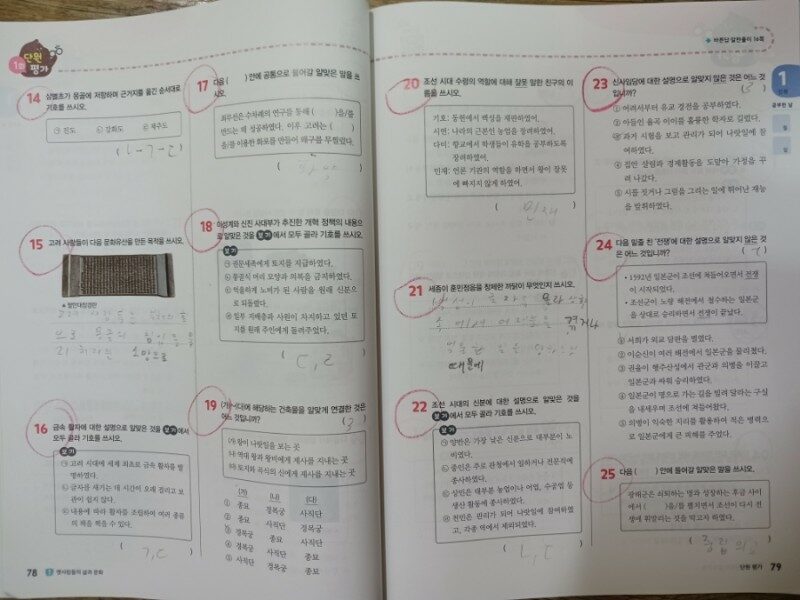 1회 단원 평가
14 삼별초가 몽골에 저항하며 근거지를 옮긴 순서대로
기호를 쓰시오.
㉠ 진도 ㉡ 강화도 ㉢ 제주도
15 고려 사람들이 다음 문화유산을 만든 목적을 쓰시오.
▲ 팔만대장경판
소망으로
16 금속 활자에 대한 설명으로 알맞은 것을 보기에서
모두 골라 기호를 쓰시오.
보기
㉠ 고려 시대에 세계 최초로 금속 활자를 발
명하였다.
㉡ 글자를 새기는 데 시간이 오래 걸리고 보
관이 쉽지 않다.
㉢ 내용에 따라 활자를 조립하여 여러 종류
의 책을 찍을 수 있다.
( ㄱ, ㄷ )
78 1 옛사람들의 삶과 문화
17 다음 ( ) 안에 공통으로 들어갈 알맞은 말을 쓰
시오.
최무선은 수차례의 연구를 통해 ( )을/를
만드는 데 성공하였다. 이후 고려는 ( )
을/를 이용한 화포를 만들어 왜구를 무찔렀다.
18 이성계와 신진 사대부가 추진한 개혁 정책의 내용으
로 알맞은 것을 보기에서 모두 골라 기호를 쓰시오.
보기
㉠ 권문세족에게 토지를 지급하였다.
㉡ 몽골식 머리 모양과 의복을 금지하였다.
㉢ 억울하게 노비가 된 사람을 원래 신분으
로 되돌렸다.
㉣ 일부 지배층과 사원이 차지하고 있던 토
지를 원래 주인에게 돌려주었다.
19 (가)~(다)에 해당하는 건축물을 알맞게 연결한 것은
어느 것입니까?
(가) 왕이 나랏일을 보는 곳
(나) 역대 왕과 왕비에게 제사를 지내는 곳
(다) 토지와 곡식의 신에게 제사를 지내는 곳
(가) (나) (다)
① 종묘 경복궁 사직단
② 종묘 사직단 경복궁
③ 경복궁 종묘 사직단
④ 경복궁 사직단 종묘
⑤ 사직단 경복궁 종묘
바른답·알찬풀이 16쪽
20 조선 시대 수령의 역할에 대해 잘못 말한 친구의 이
름을 쓰시오.
기호: 동헌에서 백성을 재판하였어.
시연: 나라의 근본인 농업을 장려하였어.
다미: 향교에서 학생들이 유학을 공부하도록
장려하였어.
민재: 언론 기관의 역할을 하면서 왕이 잘못
에 빠지지 않게 하였어.
( 민재 )
21 세종이 훈민정음을 창제한 까닭이 무엇인지 쓰시오.
겪거나
때문에
22 조선 시대의 신분에 대한 설명으로 알맞은 것을
보기에서 모두 골라 기호를 쓰시오.
보기
㉠ 양반은 가장 낮은 신분으로 대부분이 노
비였다.
㉡ 중인은 주로 관청에서 일하거나 전문직에
종사하였다.
㉢ 상민은 대부분 농업이나 어업, 수공업 등
생산 활동에 종사하였다.
㉣ 천민은 관리가 되어 나랏일에 참여하였
고, 각종 역에서 제외되었다.
( ㄴ, ㄷ )
23 신사임당에 대한 설명으로 알맞지 않은 것은 어느 것
입니까? ( 3 )
① 어려서부터 유교 경전을 공부하였다.
② 아들인 율곡 이이를 훌륭한 학자로 길렀다.
③ 과거 시험을 보고 관리가 되어 나랏일에 참
여하였다.
④ 집안 살림과 경제활동을 도맡아 가정을 꾸
려 나갔다.
⑤ 시를 짓거나 그림을 그리는 일에 뛰어난 재능
을 발휘하였다.
24 다음 밑줄 친 '전쟁'에 대한 설명으로 알맞지 않은 것
은 어느 것입니까? ( 1 )
• 1592년 일본군이 조선에 쳐들어오면서 전쟁
이 시작되었다.
• 조선군이 노량 해전에서 철수하는 일본군
을 상대로 승리하면서 전쟁이 끝났다.
① 서희가 외교 담판을 벌였다.
② 이순신이 여러 해전에서 일본군을 물리쳤다.
③ 권율이 행주산성에서 관군과 의병을 이끌고
일본군과 싸워 승리하였다.
④ 일본군이 명으로 가는 길을 빌려 달라는 구실
을 내세우며 조선에 쳐들어왔다.
⑤ 의병이 익숙한 지리를 활용하여 적은 병력으
로 일본군에게 큰 피해를 주었다.
25 다음 ( ) 안에 들어갈 알맞은 말을 쓰시오.
광해군은 쇠퇴하는 명과 성장하는 후금 사이
에서 ( )을/를 펼치면서 조선이 다시 전
쟁에 휘말리는 것을 막고자 하였다.
단원 평가 79
1
단원
공부한 날
월
일